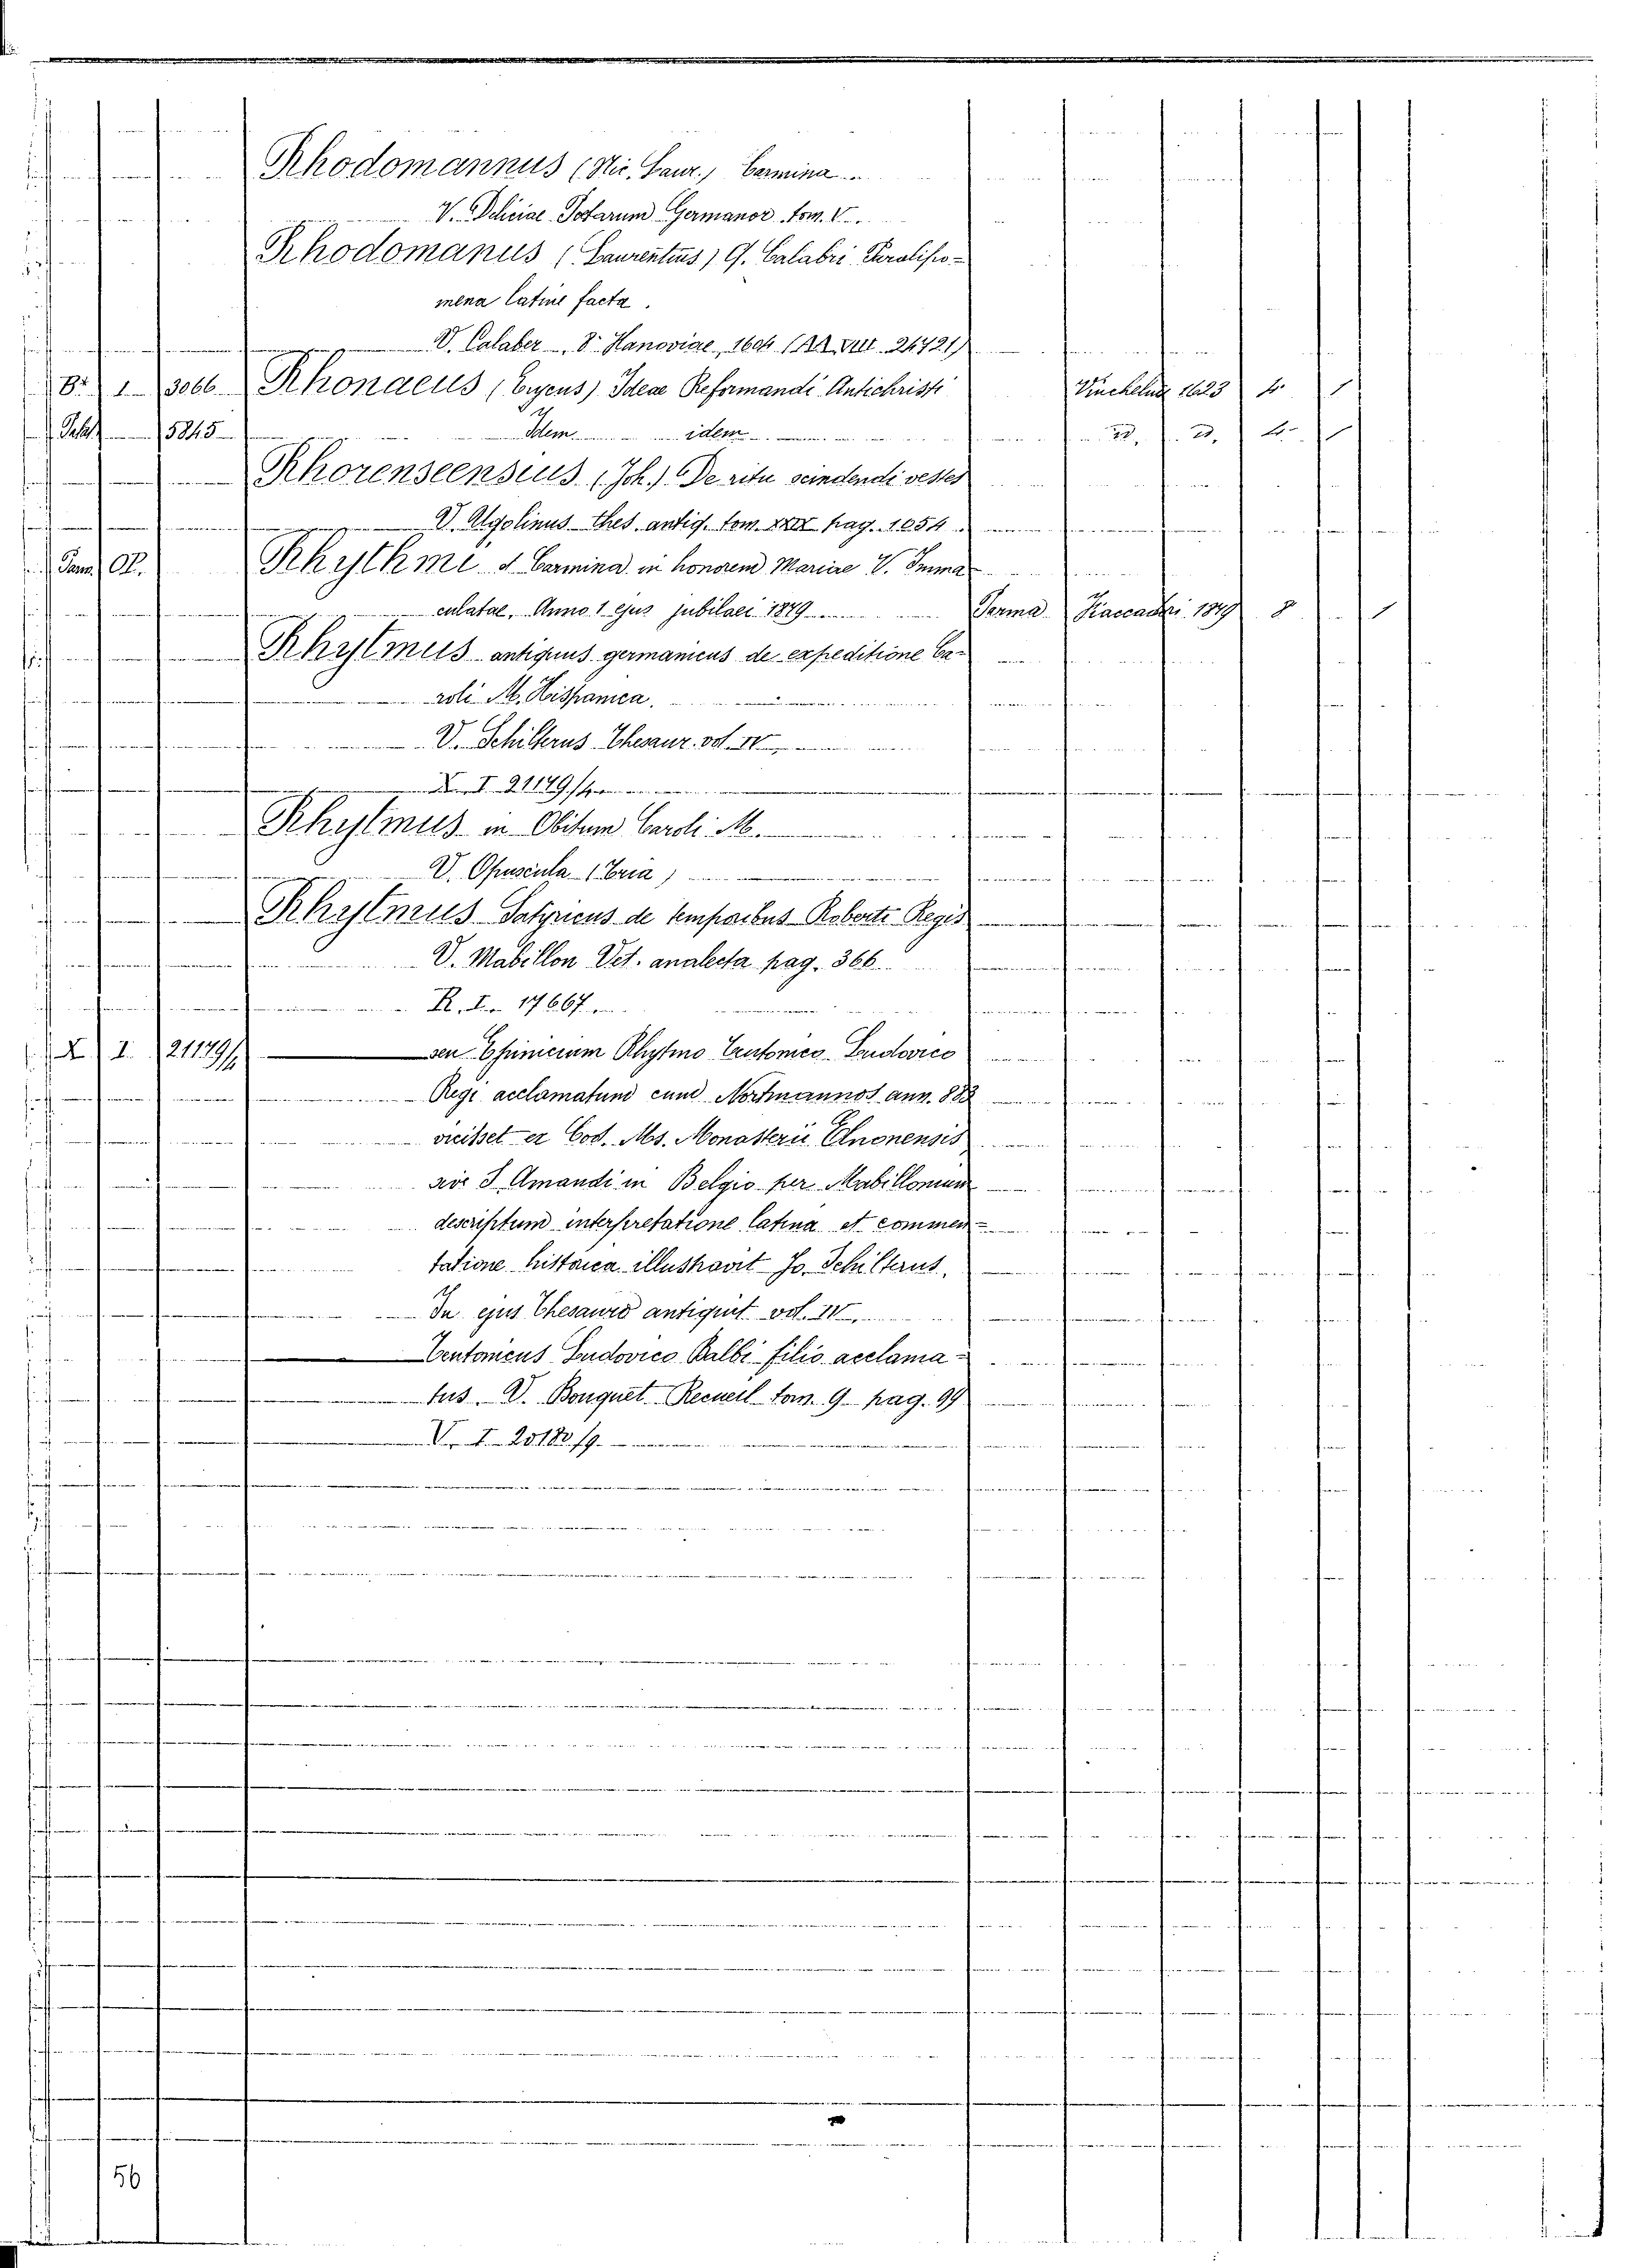 Rhodomannus (Nic. Laur.) Carmina
V. Deliciae Potarum Germanor. tom. V.
Rhodomanus (Laurentius) Q. Calabri Paralipo-
mena latine facta.
V. Calaber, 8° Hanoviae, 1604 (AA. VIII. 24721)
8° 1 3066 Rhonaeus (Eugenus) Ideae Reformandi Antichristi Vinchelune 1623 4° 1
Palat 15845 Idem idem id. id. 4° 1
Rhorenseensius (Joh.) De ritu scindendi vestes
V. Ugolinus thes. antiq. tom. XXIX pag. 1054
Pam. Of. Rhythmi & Carmina in honorem Mariae V. Imma
culatae, Anno 1 ejus jubilaei 1879 Parma Fiaccadori 1879 8 1
Rhytmus antiquus germanicus de expeditione Ca-
roli M. Hispanica.
V. Schilterus Thesaur. vol. IV
X. I 21179/4
Rhytmus in Obitum Caroli M.
V. Opuscula (Tria)
Rhytmus Satyricus de temporibus Roberti Regis
V. Mabillon Vet. analecta pag. 366
R. I. 17667
X I 21179/4 — seu Epinicium Rhytmo Teutonico Ludovico
Regi acclamatum cum Nortmannos ann. 883
vicisset ex Cod. Ms. Monasterii Elnonensis
sive S. Amandi in Belgio per Mabillonium
descriptum interpretatione latina et commen=
tatione historica illustravit Jo. Schilterus.
In ejus Thesauro antiquit. vol. IV
— Teutonicus Ludovico Balbi filio acclama=
tus. V. Bouquet Recueil tom. 9 pag. 99
V. I 20180/9
56